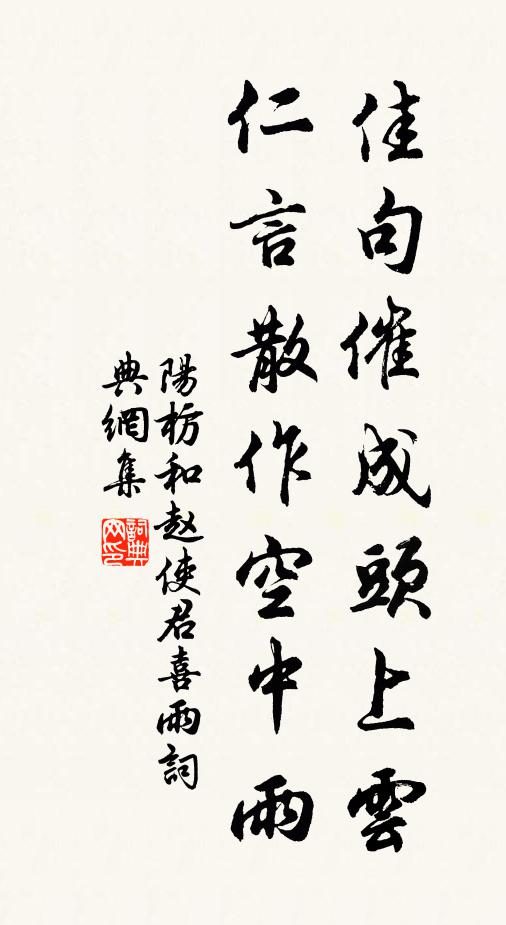 佳句催成頭上雲
仁言散作空中雨
陽枋和赵使君喜雨詞
典網集
詞典
网印